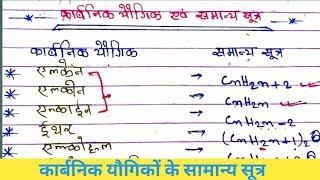 कार्बनिक यौगिक एवं समान्य सूत्र
कार्बनिक यौगिक समान्य सूत्र
* एल्केन → CnH2n+2
* एल्कीन → CnH2n
* एल्काईन → CnH2n-2
* ईथर → (CnH2n+1)2O
एल्कोहल
कार्बनिक यौगिकों के सामान्य सूत्र